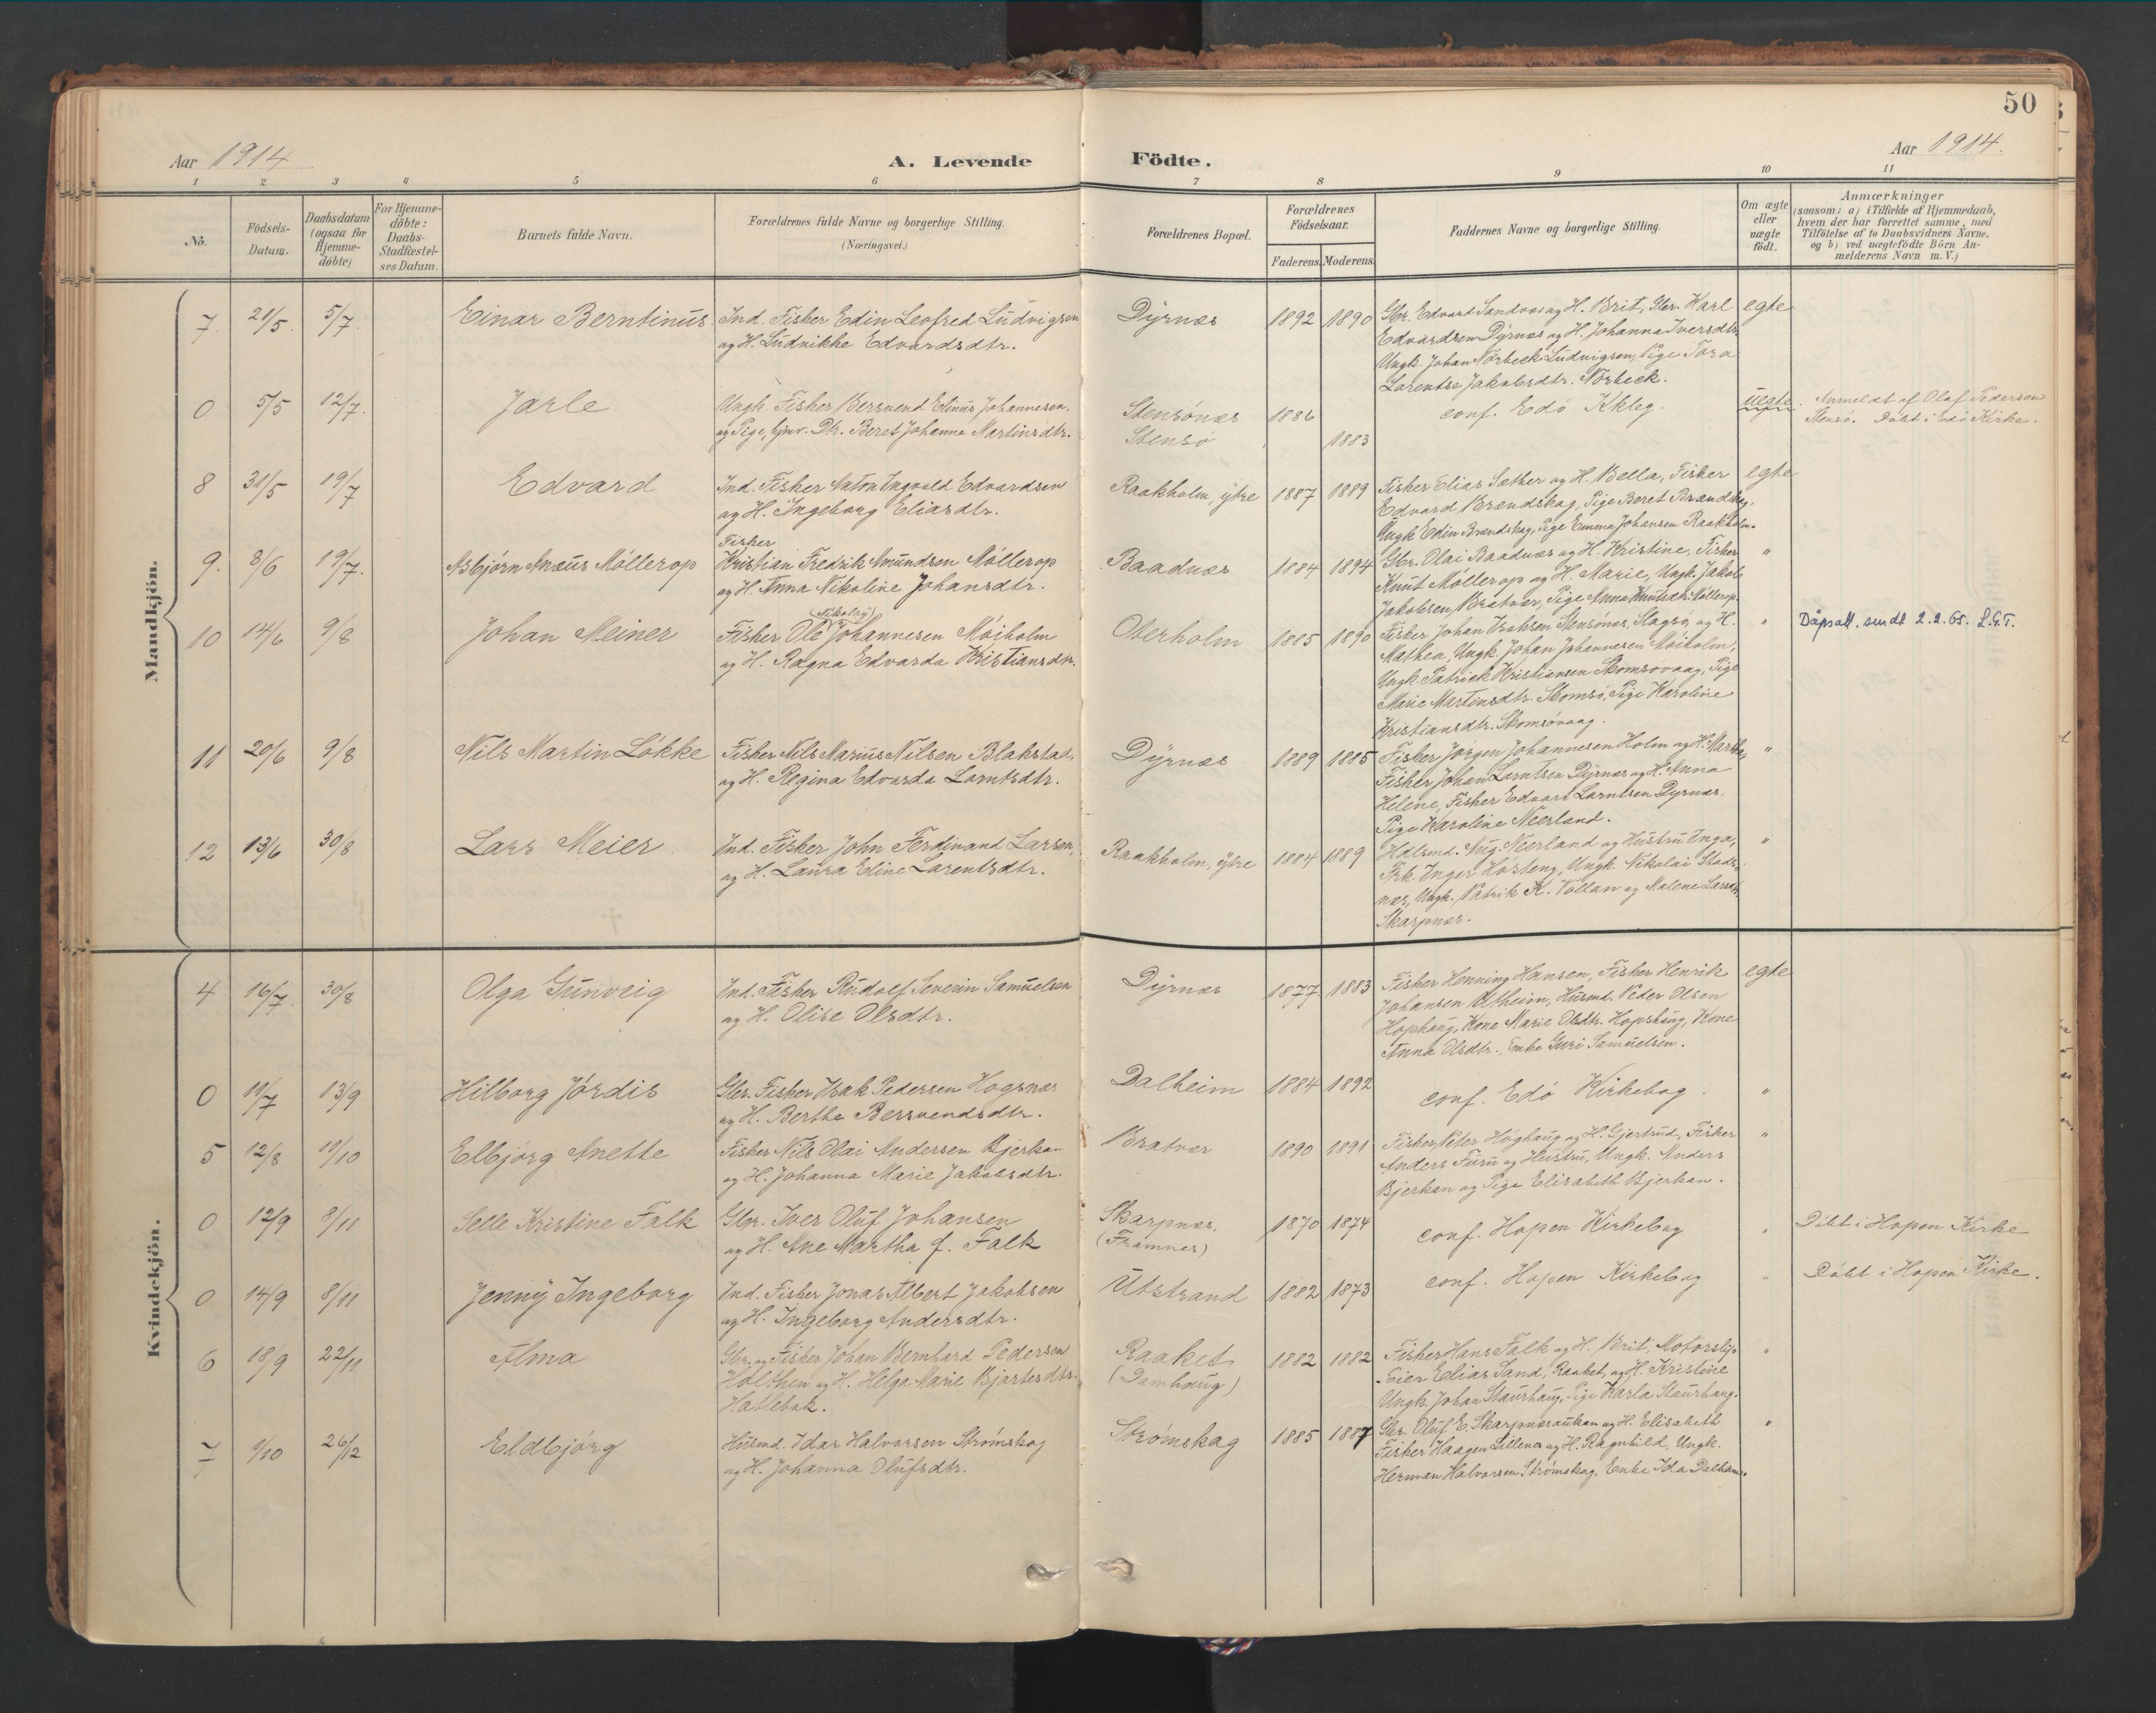 50
Aar 1914
A. Levende
Födte.
Aar 1914.
1 2 3 4 5 6 7 8 9 10 11
No.
Födsels-
Datum.
Daabsdatum
(ogsaa for
Hjemme-
döbte)
For Hjemme-
döbte:
Daabs-
Stadfæstel-
ses Datum.
Barnets fulde Navn.
Forældrenes fulde Navne og borgerlige Stilling.
(Næringsvei.)
Forældrenes Bopæl.
Forældrenes
Födselsaar.
Faderens. Moderens.
Faddernes Navne og borgerlige Stilling.
Om ægte
eller
uægte
födt.
Anmærkninger
(saasom: a) i Tilfælde af Hjemmedaab,
hvem der har forrettet samme, med
Tilföielse af to Daabsvidners Navne.
og b) ved uægtefödte Börn An-
melderens Navn m. V.)
Mandkjön.
7. 21/5. 5/7. Einar Berntinus.
Ind. Fisker Edin Leofred Ludvigsen
og H. Ludvikke Edvardsdtr.
Dyrnæs 1892 1890
Gbr. Edvard Sandvær og H. Brit, Gbr. Karl
Edvardsen Dyrnæs og H. Johanna Iversdtr.
Ungk. Johan Nörbeck Ludvigsen, Pige Tora
Larentse Jakobsdtr. Nörbeck.
egte
0 5/5 12/7. Jarle
Ungk. Fisker Bersvend Edinus Johannesen,
og Pige, hjv. Dtr. Beret Johanna Martinsdtr.
Stensönæs 1886
Stensö 1883
conf. Edö Kkleg.
uegte.
Anmeldt af Olaf Pedersen
Stensö. Döbt i Edö Kirke.
8 31/5 19/7 Edvard
Ind. Fisker Anton Ingvald Edvardsen
og H. Ingeborg Eliasdtr.
Raakholm, ytre 1887 1889
Fisker Elias Sæther og H. Bella, Fisker
Edvard Brændskag, Pige Beret Brændskag,
Ungk Edin Brændskag, Pige Emma Johansen Raakholm.
egte
9. 8/6 19/7. Asbjörn Anæus Möllerop
Fisker
Kristian Fredrik Amundsen Möllerop
og H. Anna Nikoline Johansdtr.
Baadnæs 1884 1894
Gbr. Olai Baadnæs og H. Kristine, Fisker
Knut Möllerop og H. Marie, Ungk. Jakob
Jakobsen Bratvær, Pige Anna Knutsdtr. Möllerop.
"
10 14/6 9/8 Johan Meiner
(Nikolay)
Fisker Ole Johannesen Möiholm
og H. Ragna Edvarda Kristiansdtr.
Oterholm 1885 1890
Fisker Johan Isaksen Stensönæs, Slagsö, og H.
Mathea, Ungk. Johan Johannesen Möiholm,
Ungk. Patrick Kristiansen Skomsövaag, Pige
Marie Martinsdtr. Skomsö, Pige Karoline
Kristiansdtr. Skomsövaag.
"
Dåpsatt. sendt 2.2.65. L.G.T.
11 20/6 9/8 Nils Martin Lökke
Fisker Nils Marius Nilsen Blakstad,
og H. Regina Edvarda Larntsdtr.
Dyrnæs 1889 1885
Fisker Jörgen Johannesen Holm og H. Martha,
Fisker Johan Larntsen Dyrnæs og H. Anna
Helene, Fisker Edvart Larntsen Dyrnæs,
Pige Karoline Neerland.
"
12 13/6 30/8 Lars Meier
Ind. Fisker John Ferdinand Larsen,
og H. Laura Edine Larentsdtr.
Raakholm, ytre 1884 1889
Hdlsmd. Aug. Neerland og Hustru Inga,
Frk. Inger Hösteng, Ungk. Nikolai Stads-
næs, Ungk. Patrik K. Vollan og Malene Larsdtr.
Skarpnæs.
"
Kvindekjön.
4 16/7. 30/8 Olga Gunveig
Ind. Fisker Rudolf Severin Samuelsen
og H. Olise Olsdtr.
Dyrnæs 1877 1883
Fisker Henning Hansen, Fisker Henrik
Johansen Utheim, Husmd. Peder Olsen
Hopshaug, Kone Marie Olsdtr. Hopshaug, Kone
Anna Olsdtr., Enke Guri Samuelsen.
egte
0 11/7 13/9 Hilborg Jördis
Gbr. Fisker Isak Pedersen Hogsnæs
og H. Berthe Bersvendsdtr.
Dalheim 1884 1892
conf. Edö Kirkebog.
"
5 12/8 11/10 Elbjörg Anette
Fisker Nils Olai Andersen Bjerkan
og H. Johanna Marie Jakobsdtr.
Bratvær 1890 1891
Fisker Peter Höghaug og H. Gjertrud, Fisker
Anders Furu og Hustru, Ungk. Anders
Bjerkan og Pige Elisabeth Bjerkan.
"
0 12/9 8/11 Selle Kristine Falk
Gbr. Iver Oluf Johansen
og H. Ane Martha f. Falk
Skarpnæs, (Framnes) 1870 1874
conf. Hopen Kirkebog
"
Döbt i Hopen Kirke
0 14/9 8/11 Jenny Ingeborg
Ind. Fisker Jonas Albert Jakobsen
og H. Ingeborg Andersdtr.
Utstrand 1882 1873
conf. Hopen Kirkebog
"
Döbt i Hopen Kirke.
6 18/9 22/11 Alma
Gbr. og Fisker Johan Bernhard Pedersen
Holthen og H. Helga Marie Bjartesdtr.
Hatlebak.
Raaket (Damhaug) 1882 1882
Fisker Hans Falk og H. Brit, Motorslip-
Eier Elias Sand, Raaket, og H. Kristine
Ungk. Johan Staurhaug, Pige Karla Staurhaug.
"
7 9/10 26/12 Eldbjörg
Husmd. Idar Halvorsen Strömskag
og H. Johanna Olufsdtr.
Strömskag 1885 1887
Gbr. Oluf E. Skarpnæsaukan og H. Elisabeth
Fisker Haagen Lillenes og H. Ragnhild, Ungk.
Herman Halvorsen Strömskag, Enke Ida Dalham.
"